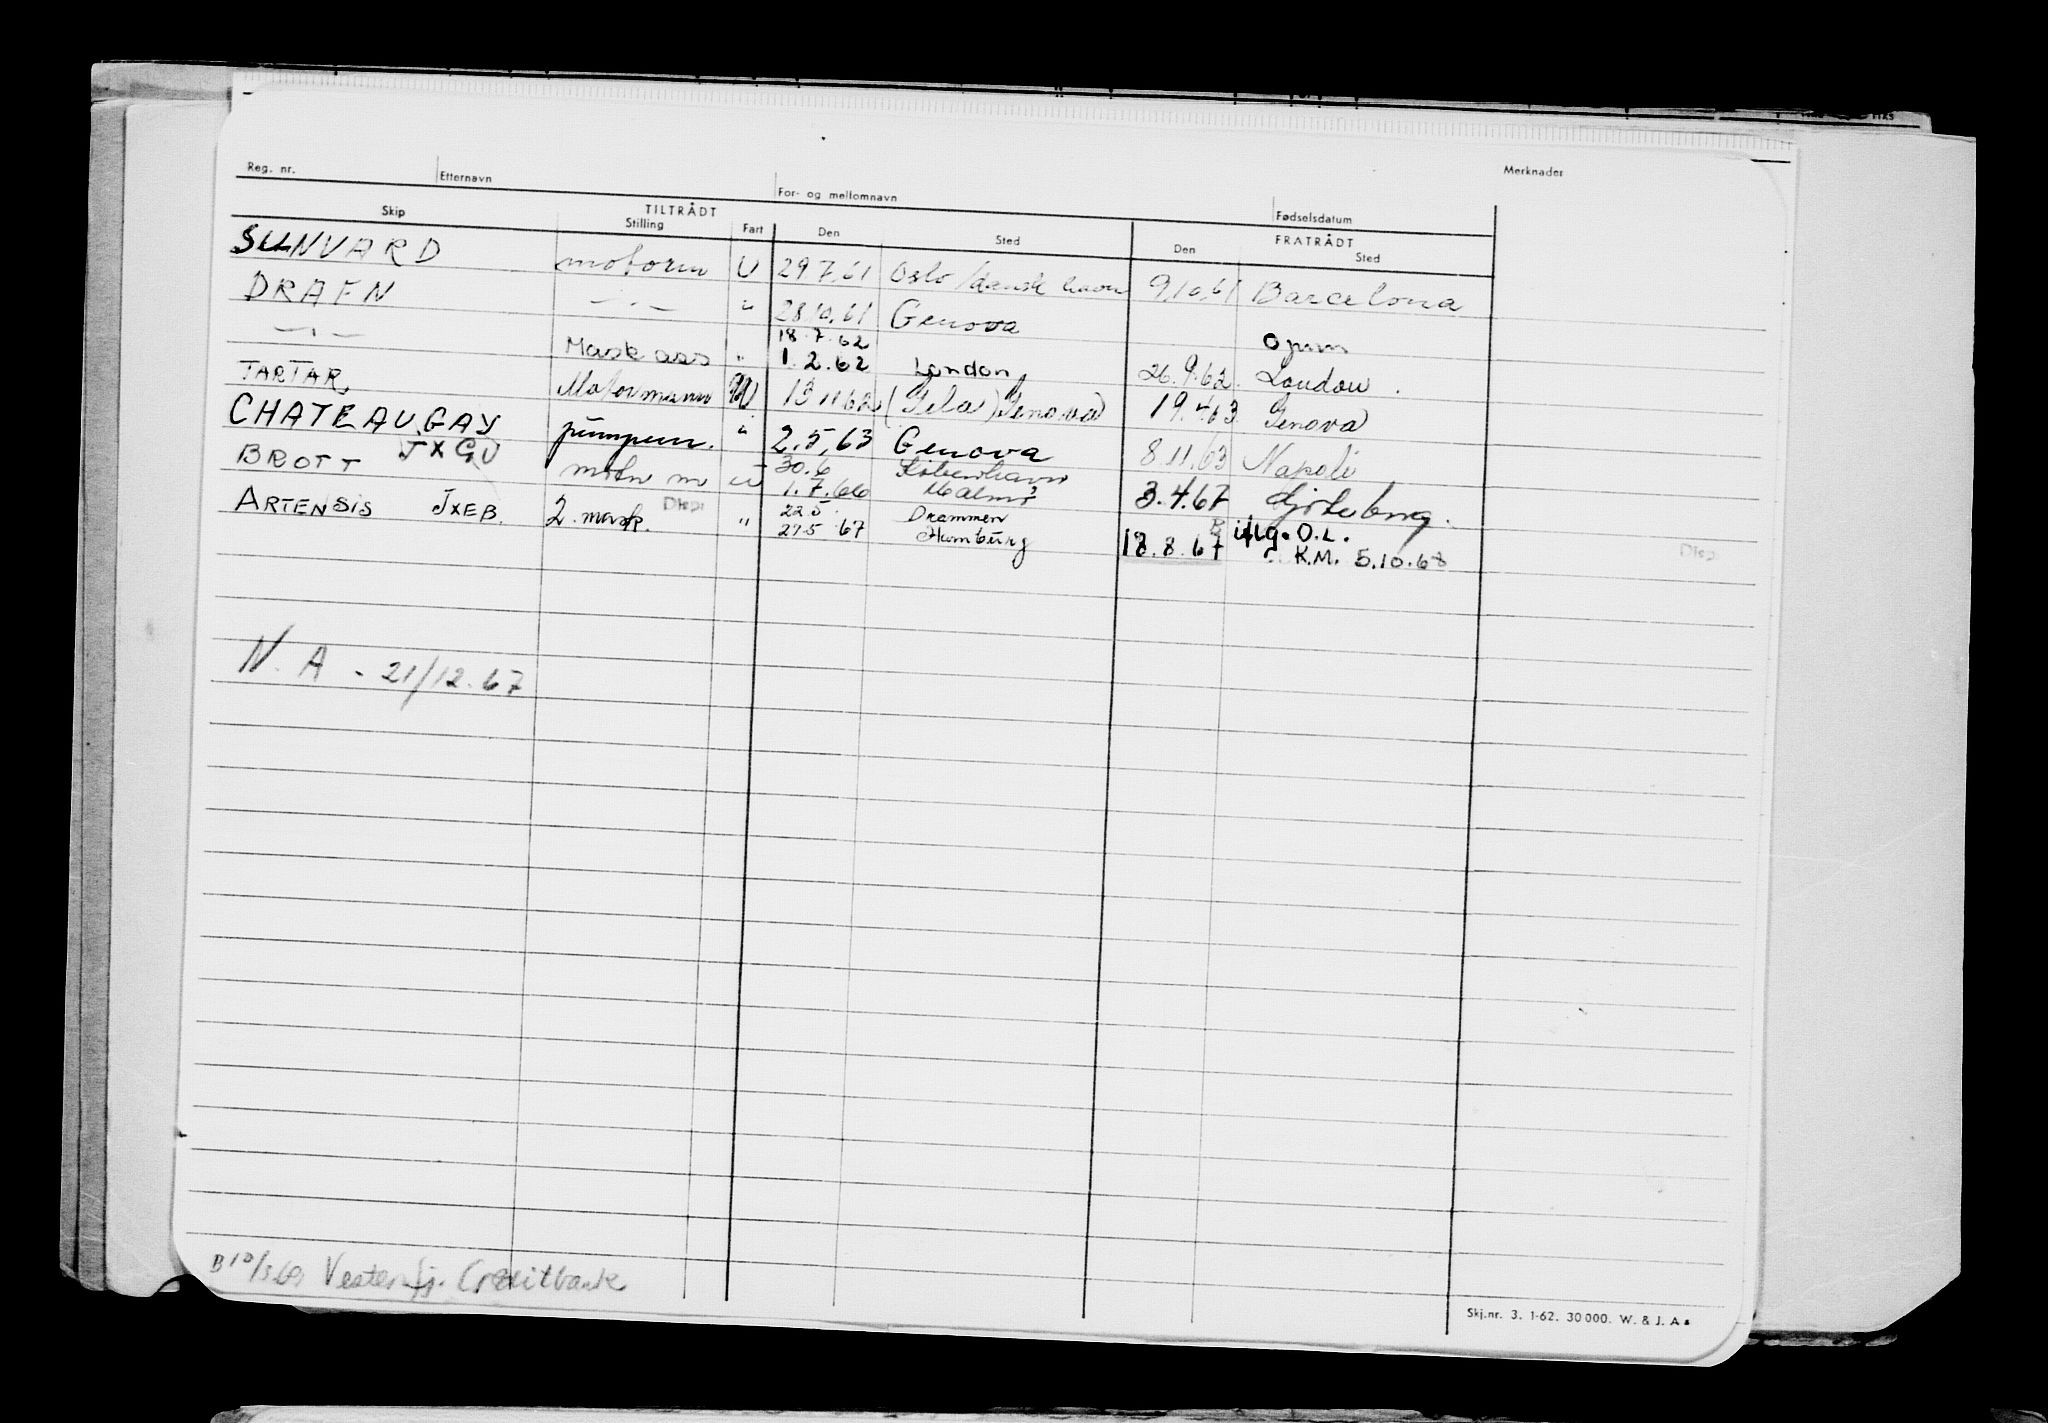 Reg. nr. Etternavn For- og mellomnavn Fødselsdatum Merknader
TILTRÅDT FRATRÅDT
Skip Stilling Fart Den Sted Den Sted
SUNVARD motorm U 29.7.61 Oslo/dansk havn 9.10.61 Barcelona
DRAFN —"— " 28.10.61 Genova
—"— Mask ass " 18.7.62 opm
1.2.62 London 26.9.62. London.
TARTAR Motormann U 13.11.62 (Gela) Genova 19.4.63 Genova
CHATEAUGAY pumpem. " 2.5.63 Genova 8.11.63 Napoli
BROTT JXGU motm u 30.6 København
1.7.66 Malmö 3.4.67 Gøteborg.
ARTENSIS JXEB. 2. mask. Disp. " 22.5 Drammen
27.5 67 Hamburg 18.8.67 iflg. O.L.
K.M. 5.10.68 Disp.
N.A - 21/12.67
B 10/3.69 Vesterfj. Creditbank
Skj.nr. 3. 1-62. 30000. W. & J. A s